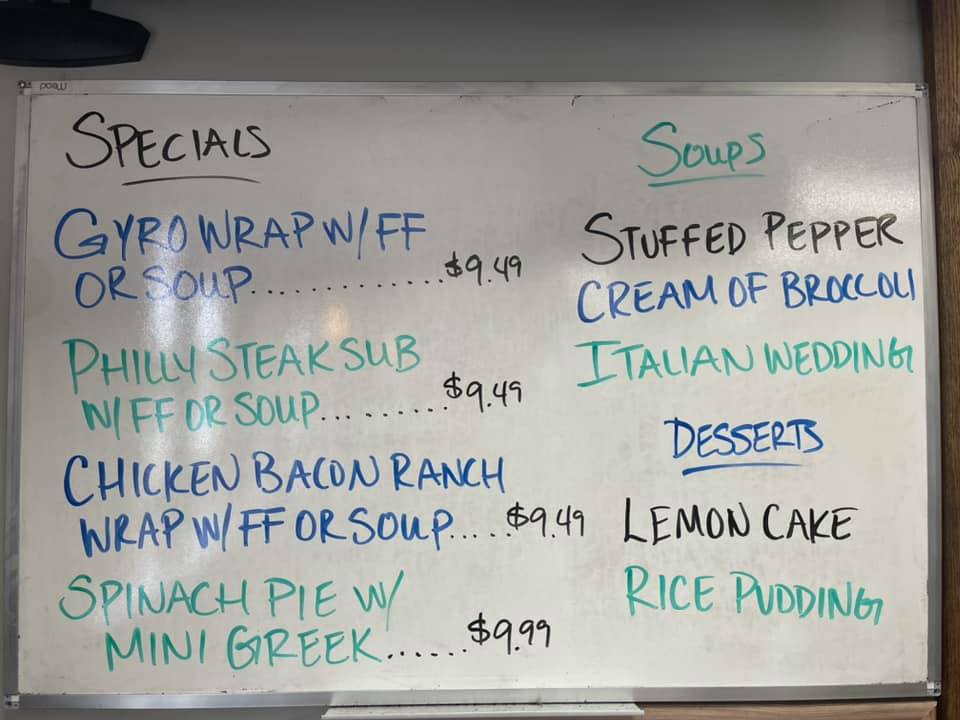 SPECIALS
GYRO WRAP W/FF
OR SOUP.............$9.49
PHILLY STEAK SUB
W/FF OR SOUP.........$9.49
CHICKEN BACON RANCH
WRAP W/FF OR SOUP.....$9.49
SPINACH PIE W/
MINI GREEK......$9.99
SOUPS
STUFFED PEPPER
CREAM OF BROCCOLI
ITALIAN WEDDING
DESSERTS
LEMON CAKE
RICE PUDDING